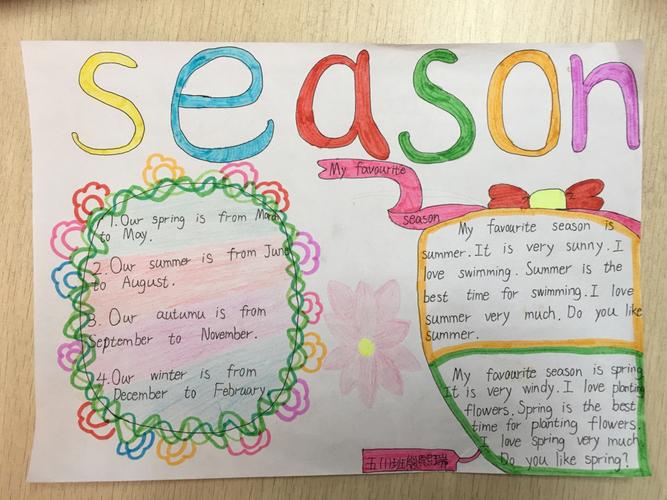 season
My favourite
season
1. Our spring is from March
to May.
2. Our summer is from June
to August.
3. Our autumu is from
September to November.
4. Our winter is from
December to February
My favourite season is
summer. It is very sunny. I
love swimming. Summer is the
best time for swimming. I love
summer very much. Do you like
summer.
My favourite season is spring
It is very windy. I love planting
flowers. Spring is the best
time for planting flowers.
I love Spring very much
Do you like spring?
五(1)班